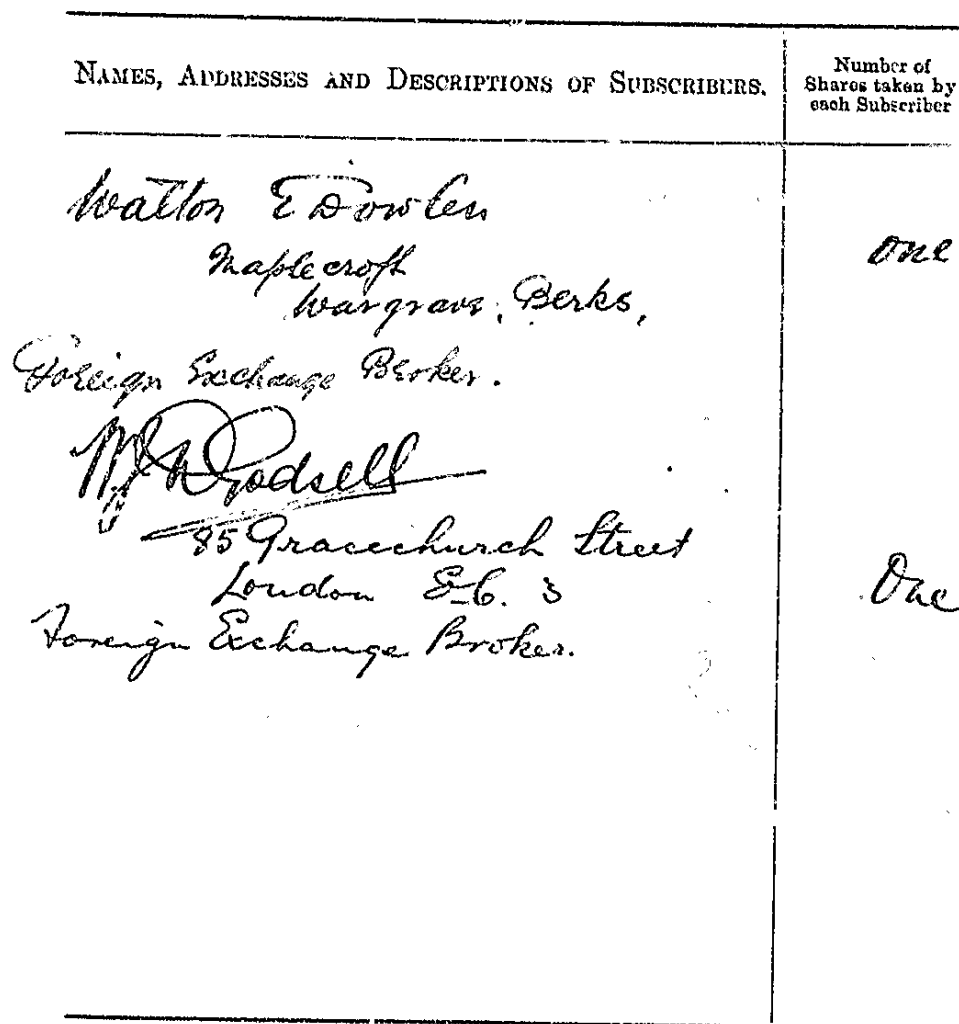 NAMES, ADDRESSES AND DESCRIPTIONS OF SUBSCRIBERS.
Number of
Shares taken by
each Subscriber
Walton E
Maplecroft
Wargrave, Berks,
one
Foreign Exchange Broker.
Godsell
85 Gracechurch Street
London E.C. 3
One
Foreign Exchange Broker.